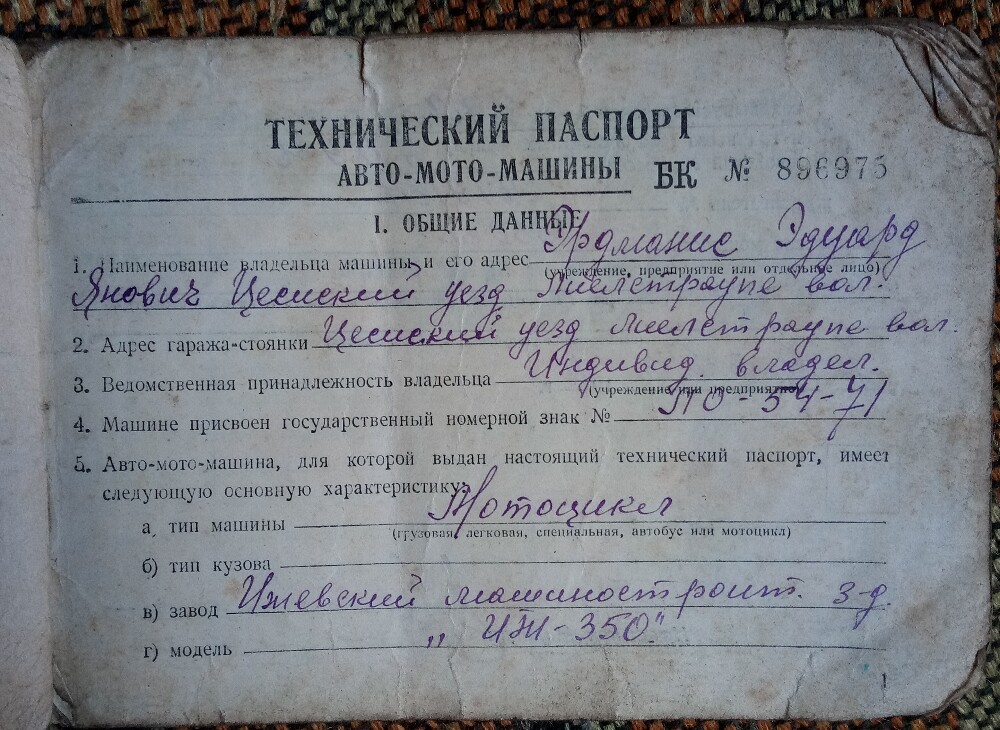 ТЕХНИЧЕСКИЙ ПАСПОРТ
АВТО-МОТО-МАШИНЫ БК № 896975
I. ОБЩИЕ ДАННЫЕ
1. Наименование владельца машины и его адрес Эрдманис Эдуард
(учреждение, предприятие или отдельное лицо)
Янович Цесиский уезд Лиелстраупе вол.
2. Адрес гаража-стоянки Цесиский уезд Лиелстраупе вол.
3. Ведомственная принадлежность владельца Индивид. владел.
(учреждение или предприятие)
4. Машине присвоен государственный номерной знак № 54-71
5. Авто-мото-машина, для которой выдан настоящий технический паспорт, имеет
следующую основную характеристику:
а) тип машины Мотоцикл
(грузовая, легковая, специальная, автобус или мотоцикл)
б) тип кузова
в) завод Ижевский машиностроит. з-д
г) модель „ИЖ-350"
1